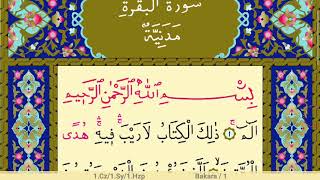 سُورَةُ الْبَقَرَةِ
مَدَنِيَّةٌ
بِسْمِ اللّٰهِ الرَّحْمٰنِ الرَّحِيمِ
الٓمٓ ﴿١﴾ ذٰلِكَ الْكِتَابُ لَا رَيْبَ فِيهِ هُدًى
1.Cz/1.Sy/1.Hzp
Bakara / 1